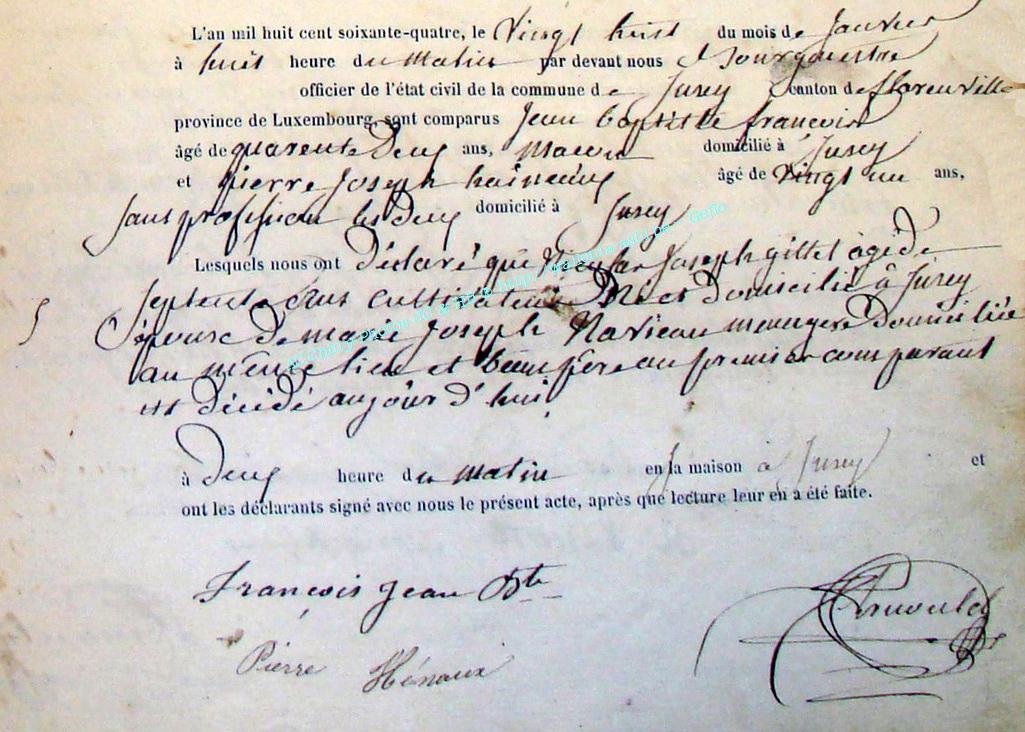 L'an mil huit cent soixante-quatre, le Vingt huit du mois de Janvier
à huit heure du Matin par devant nous Bourguestre
officier de l'état civil de la commune de Jusey canton de florenville
province de Luxembourg, sont comparus Jean baptiste francois
âgé de quarente Deux ans, Macon domicilié à Jusey
et pierre Joseph hainaux âgé de Vingt un ans,
sans profession les deux domicilié à Jusey
Lesquels nous ont déclaré que Joseph gillet âgé de
septente ans cultivateur Né et Domicilié à Jusey
Epoux de marie Joseph Navieau menagere Domiciliée
au même lieu et beau père au premier comparant
est décédé aujour d'hui
à deux heure du matin en la maison à Jusey et
ont les déclarants signé avec nous le présent acte, après que lecture leur en a été faite.
François Jean Bte
Pierre Hénaux